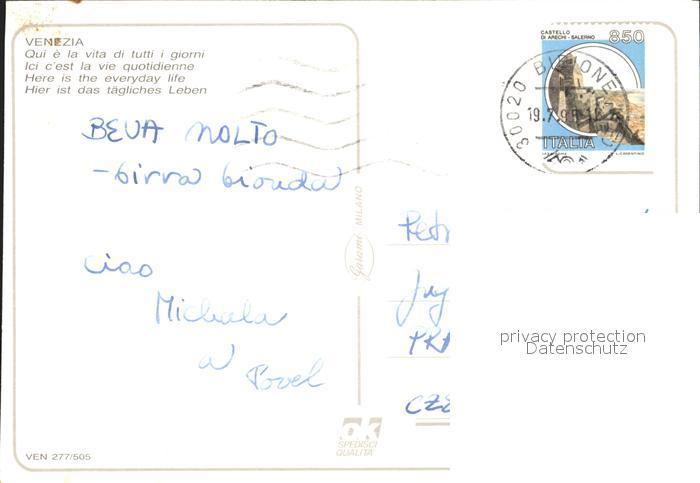 VENEZIA
Qui è la vita di tutti i giorni
Ici c'est la vie quotidienne
Here is the everyday life
Hier ist das tägliches Leben
CASTELLO
DI ARECHI - SALERNO
850
30020 BIBIONE
19.7.9
ITALIA
BEVA MOLTO
-birra bionda
Ciao
Michala
a
Pavel
Garami MILANO
Petr
privacy protection
Datenschutz
CZE
ok
SPEDISCI
QUALITÀ
VEN 277/505